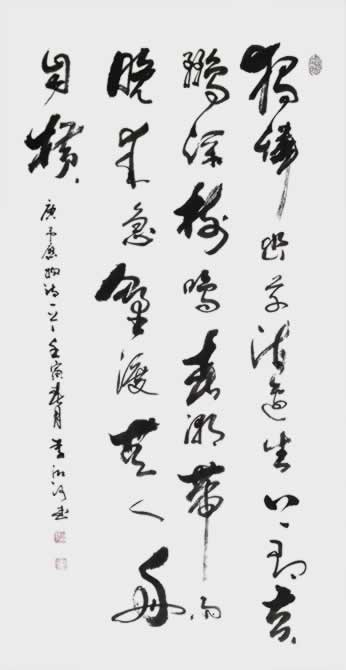 獨憐幽草澗邊生上有黄
鸝深樹鳴春潮帶雨
晚来急野渡無人舟
自橫
唐韋應物詩一首壬寅春月